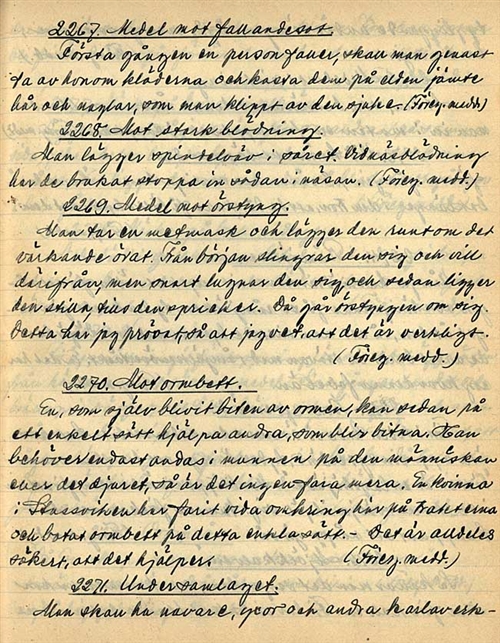 2267. Medel mot fallandesot.
Första gången en person faller, skall man genast
ta av honom kläderna och kasta dem på elden jämte
hår och naglar, som man klippt av den sjuke. (Föreg. medd.)
2268. Mot stark blödning.
Man lägger spindelväv i såret. Vid näsblödning
har de brukat stoppa in sådan i näsan. (Föreg. medd.)
2269. Medel mot örstyng.
Man tar en metmask och lägger den runt om det
värkande örat. Från början slingrar den sig och vill
därifrån, men snart lugnar den sig och sedan ligger
den stilla, tills den spricker. Då går örstyngen om sig.
Detta har jag prövat, så att jag vet, att det är verkligt.
(Föreg. medd.)
2270. Mot ormbett.
En, som själv blivit biten av ormen, kan sedan på
ett enkelt sätt hjälpa andra, som blir bitna. Han
behöver endast andas i munnen på den människan
eller det djuret, så är det ingen fara mera. En kvinna
i har farit vida omkring här på trakterna
och botat ormbett på detta enkla sätt. - Det är alldeles
säkert, att det hjälper. (Föreg. medd.)
2271. Under samlaget.
Man skall ha navare, yxor och andra karlaverk-